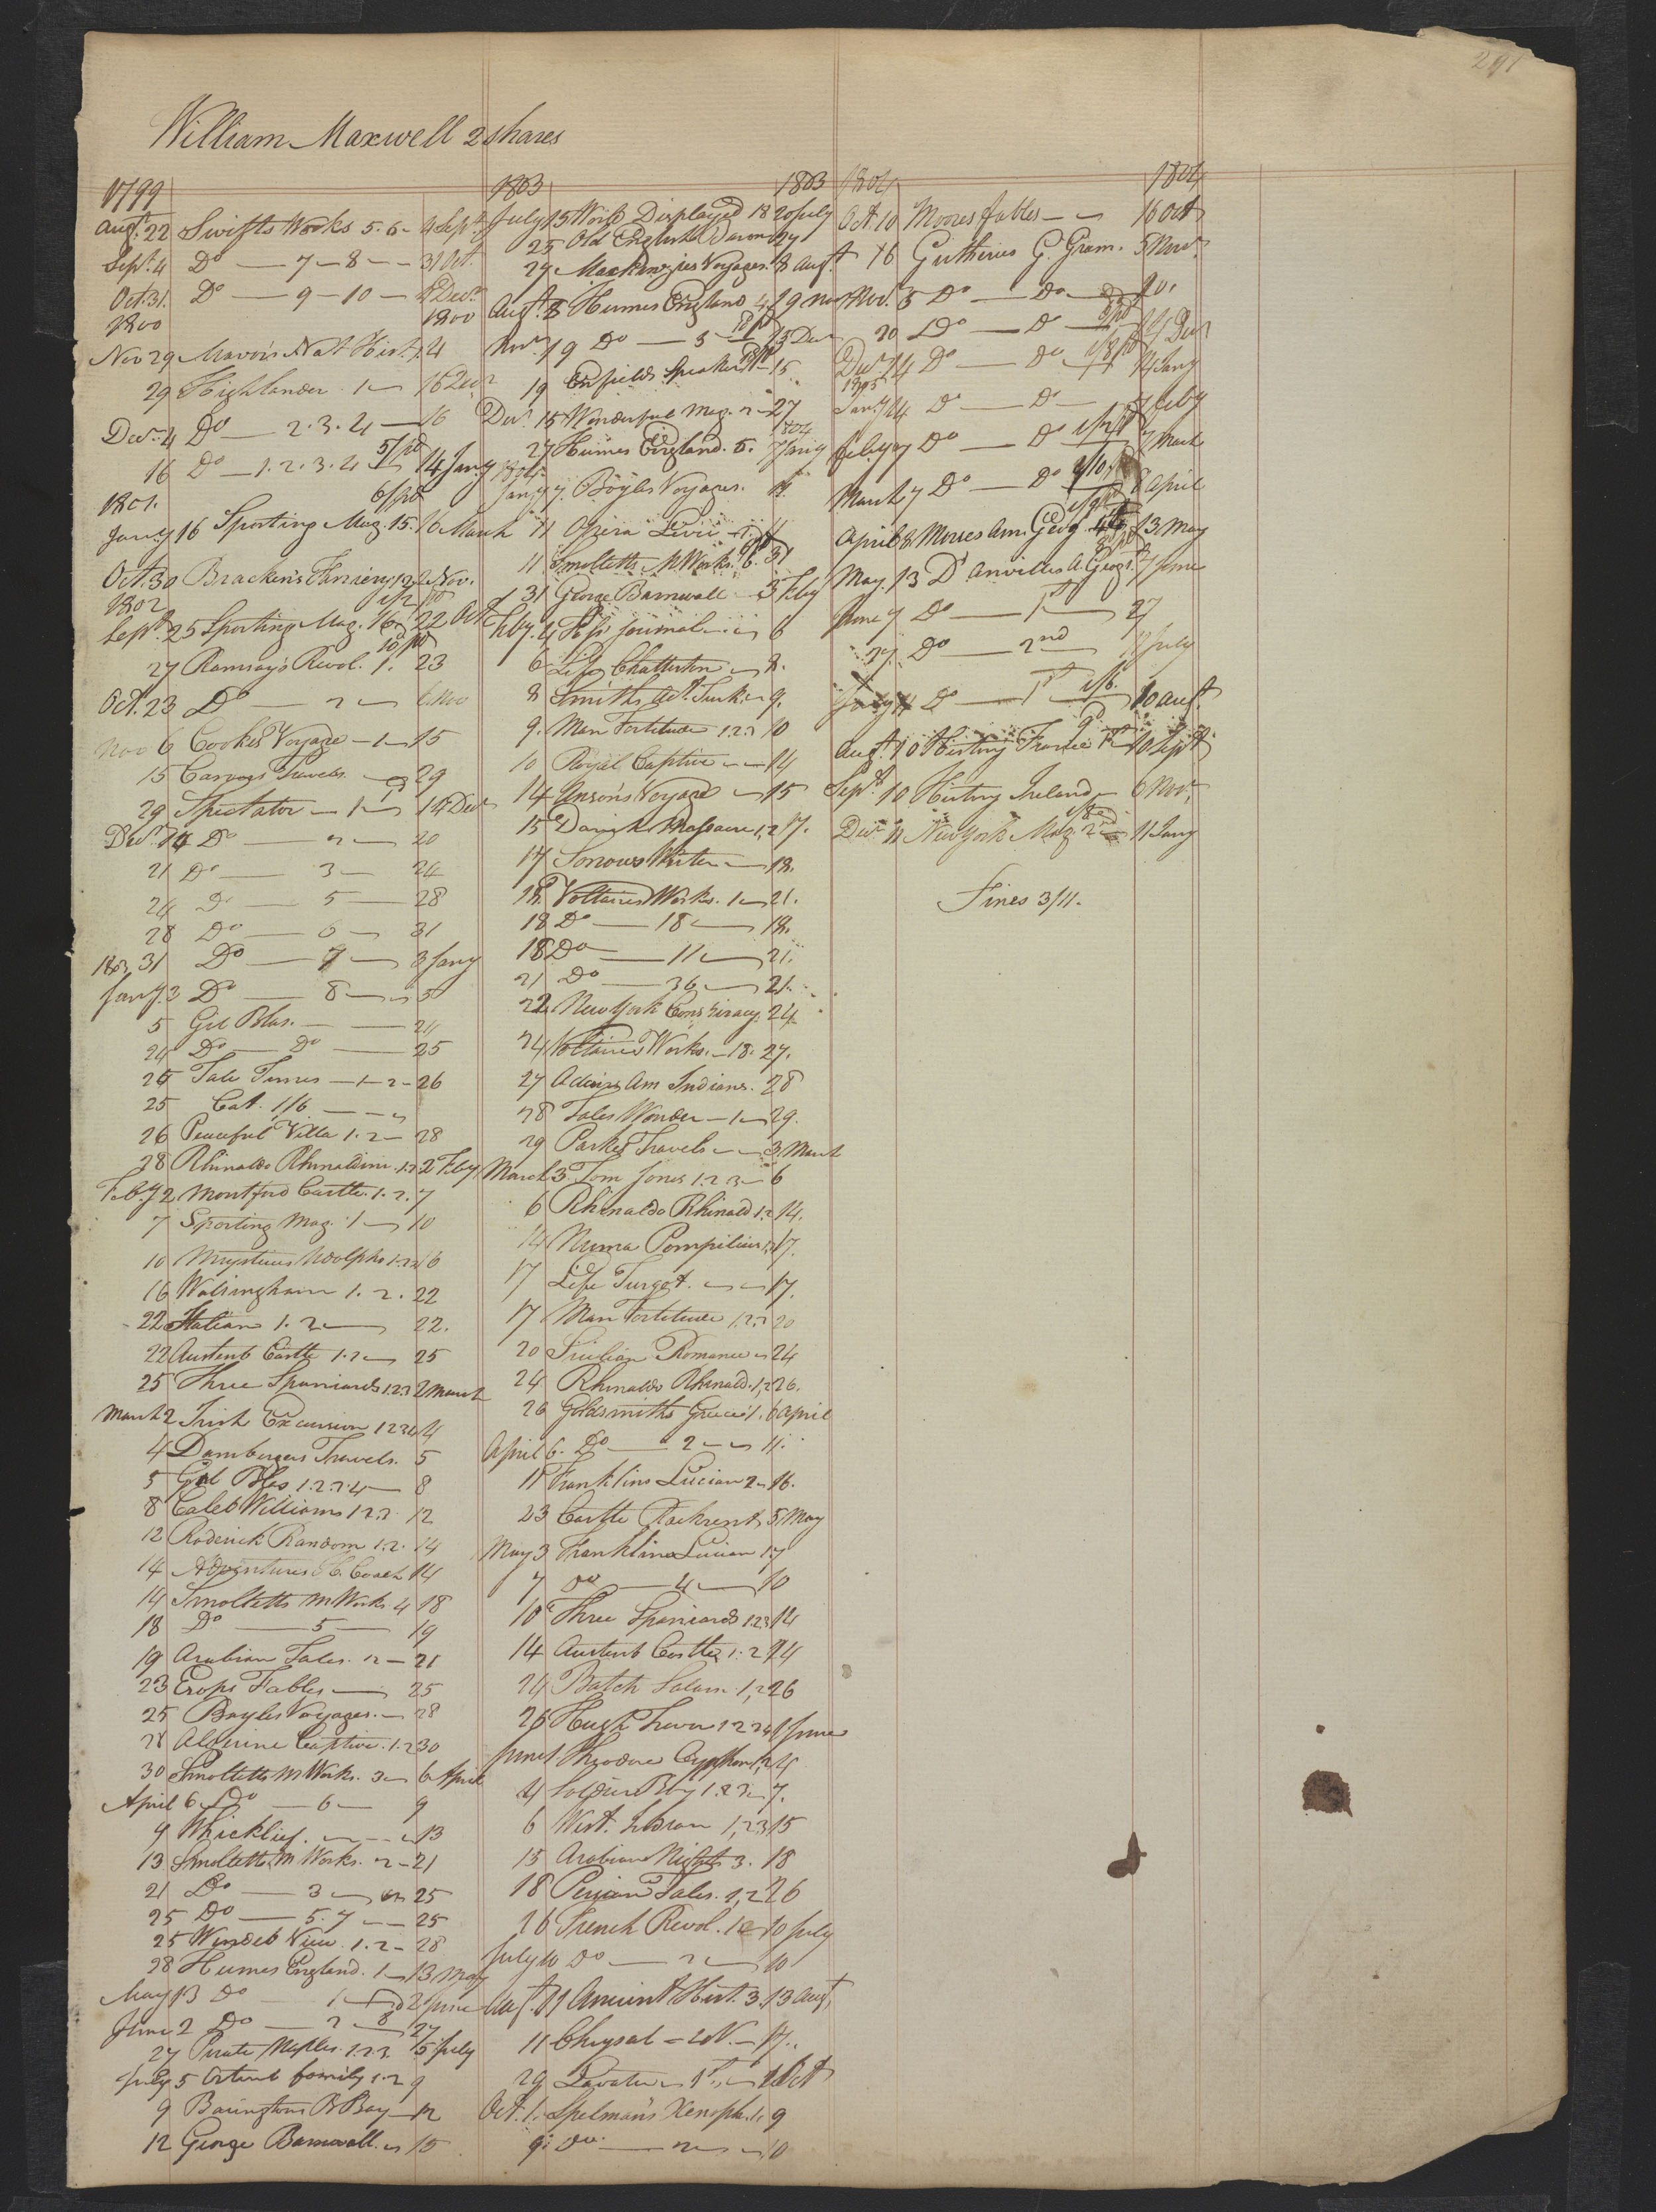 291
William Maxwell 2 shares
1799
Augt. 22 Swifts Works 5. 6 4 Sept.
Sept. 4 Do 7 8 31 Oct.
Oct. 31. Do 9 10 Decr.
1800 1800
Nov 29 Mavor's Nat Hist. 1 4
29 Highlander 1 16 Decr
Decr. 4 Do 2. 3. 4 16
16 Do 1. 2. 3. 4 5/ pd 14 Jany
1801. 6/ pd
Jany 16 Sporting Mag. 15. 16 March
Oct. 30 Bracken's Farriery 1 2 2 Nov.
1802
Sept. 25 Sporting Mag. 16 22 Oct
27 Ramsay's Revol. 1. 23
Oct. 23 Do 2 6 Nov
Nov 6 Cooke's Voyage 1 15
15 Carvers Travels 29
29 Spectator 1 14 Decr
Decr. 14 Do 2 20
21 Do 3 24
24 Do 5 28
28 Do 6 31
1803 31 Do 7 3 Jany
Jany. 3 Do 8 5
5 Gil Blas. 24
24 Do Do 25
25 Tale Times 1 2 26
25 Cat. 1/6
26 Peaceful Villa 1. 2 28
28 Rhinaldo Rhinaldini 1. 2 2 Feby
Feby 2 Montford Castle. 1. 2. 7
7 Sporting Mag. 1 10
10 Mysteries Udolpho 1. 2. 3 16
16 Walsingham 1. 2. 22
22 Italian 1. 2 22.
22 Austenb Castle 1. 2 25
25 Three Spaniards 1. 2. 3 2 March
March 2 Irish Excursion 1 2 3 4 4
4 Dambergers Travels. 5
5 Gil Blas 1. 2. 3 4 8
8 Caleb Williams 1 2. 3. 12
12 Roderick Random 1. 2. 14
14 Adventures H. Coach 14
14 Smolletts M Works. 4 18
18 Do 5 19
19 Arabian Tales. 1 2 21
23 Esops Fables 25
25 Boyles Voyages. 28
28 Algerine Captive. 1. 2 30
30 Smolletts M Works. 3 6 April
April 6 Do 6 9
9 Whicklief. 13
13 Smolletts M Works. 2 21
21 Do 3 25
25 Do 5. 7 25
25 Winded View 1. 2 28
28 Humes England. 1 13 May
May 13 Do 1 2 June
June 2 Do 2 27
27 Pirate Naples 1. 2. 3. 5 July
July 5 Ortenb family 1. 2 9
9 Barringtons B Bay 12
12 George Barnwall. 15
1803 1803
July 15 World Displayed 18 20 July
25 Old English Baron 29
29 Mackenzies Voyages. 8 Augt
Augt. 8 Humes England 4. 19 Nov
Nov. 19 Do 5 15 Decr
19 Enfields Speaker 15
Decr. 15 Wonderful Mag. 2 27
1804
27 Humes England. 5. 7 Jany
1804
Jany 7. Boyles Voyages. 11.
11 Opera Livii 11
11 Smolletts M Works. 6. 31
31 George Barnwall 3 Feby
Feby. 4 Hi's journal 6
6 Life Chatterton 8.
8 Smiths 9.
9. Man Fortitude 1 2. 3 10
10 Royal Captive 14
14 Ansons Voyage 15
15 Danish Massacre 1, 2 17.
17 Sorrows Werter 18.
18. Voltaires Works. 1 21.
18 Do 18 18.
18 Do 11 21.
21 Do 36 21.
22 New York Conspiracy. 24
24 Voltaires Works. 18. 27.
27 Adairs Am Indians. 28
28 Tales Wonder 1 29.
29 Parkes Travels 3 March
March 3. Tom Jones 1. 2 3 6
6 Rhinaldo Rhinald 1. 2 14.
14 Numa Pompilius 1, 2 17.
17 Life Turgot. 17.
17 Man Fortitude 1 2. 3 20
20 Sicilian Romance 24
24 Rhinaldo Rhinald. 1, 2 26.
26 Goldsmiths Greece 1. 6 April
April 6. Do 2 11.
11 Franklins Lucian 2 16.
23 Castle Rackrent 3 May
May 3 Franklins Lucian 1. 7
7 Do 4 10
10 Three Spaniards 1 2 3 14
14 Austenb Castle 1. 2 24
24 Batch Salam 1, 2 26
26 Hugh Trevor 1 2 3 4 1 June
June 1 Theodore Cyphon 1, 2 4
4 Soldier Boy 1. 2 3 7.
6 West. Indian 1, 2 3 15
15 Arabian Nights 3. 18
18 Persian Tales. 1, 2 26
26 French Revol. 1 10 July
July 10 Do 2 10
Augt. 11 Ancient Hist. 3. 13 Augt.
11 Chrysal 2 V. 17.
29 Lavater 1st. 1 Oct
Oct. 1. Spelmans Xenoph. 1. 9
9. Do. 2 10
1804 1804
Oct. 10 Moores fables 16 Oct
16 Gutheries G. Gram. 5 Novr.
Nov. 5 Do Do 20.
20 Do Do 14 Decr
Decr. 14 Do Do 14 Jany
1805
Jany 14 Do Do 7 feby
feby 7 Do Do 7 March
March 7 Do Do 8 april
april 8 Morses Am. Geog. 13 May
May. 13 D'Anvilles A. Geog. 7 June
June 7 Do 1st 27
27. Do 2nd July
July Do 1st 1/6. 10 augt
augt. 10 History France 1st 10 Sept
Sept. 10 History Ireland 6 Nov.
Decr 11 New York Mag. 2nd 11 Jany
Fines 3/11.